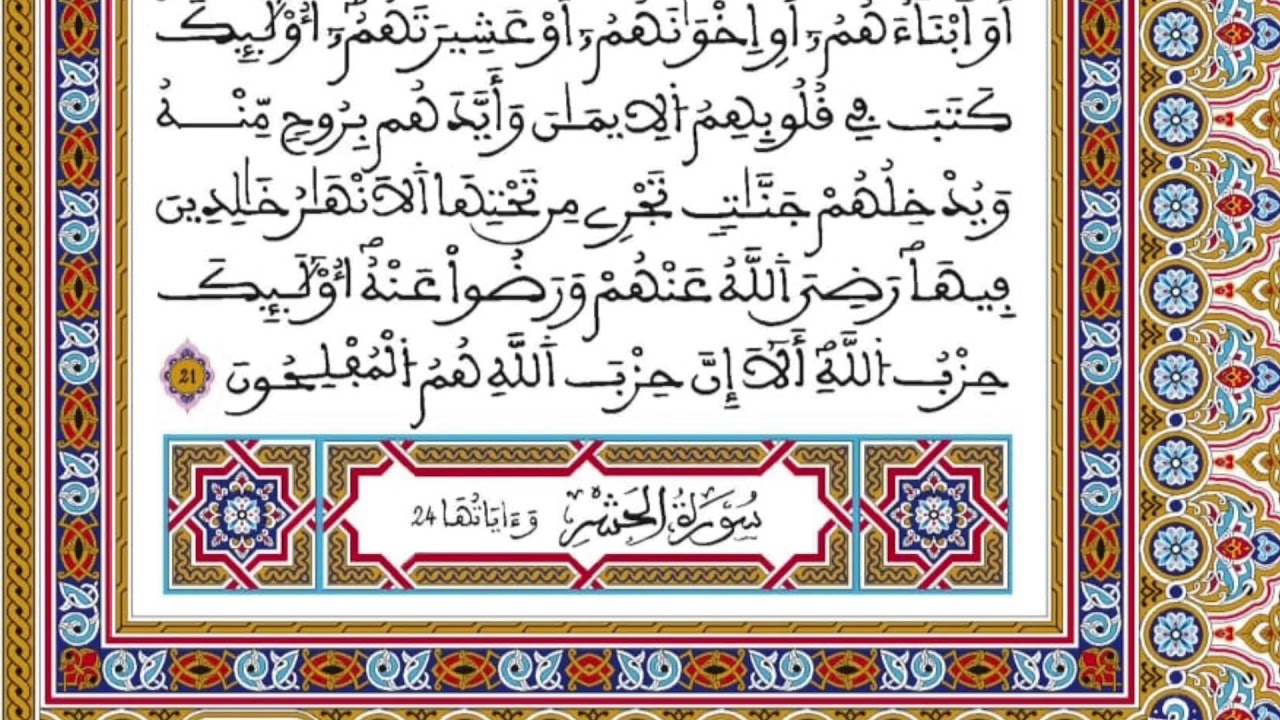 أَوَ اَبْنَآءَهُمُۥٓ أَوِ اِخْوَٰنَهُمُۥٓ أَوْ عَشِيرَتَهُمُۥٓۖ أُوْلَٰٓئِكَ
كَتَبَ فِے قُلُوبِهِمُ اُ۬لِايمَٰنَ وَأَيَّدَهُم بِرُوحٖ مِّنْهُ
وَيُدْخِلُهُمْ جَنَّٰتٖ تَجْرِے مِن تَحْتِهَا اَ۬لَانْهَٰرُ خَٰلِدِينَ
فِيهَاۖ رَضِيَ اَ۬للَّهُ عَنْهُمْ وَرَضُواْ عَنْهُۖ أُوْلَٰٓئِكَ
حِزْبُ اُ۬للَّهِۖ أَلَآ إِنَّ حِزْبَ اَ۬للَّهِ هُمُ اُ۬لْمُفْلِحُونَ 21
سُورَةُ الحَشْرِ وَءَايَاتُهَا 24